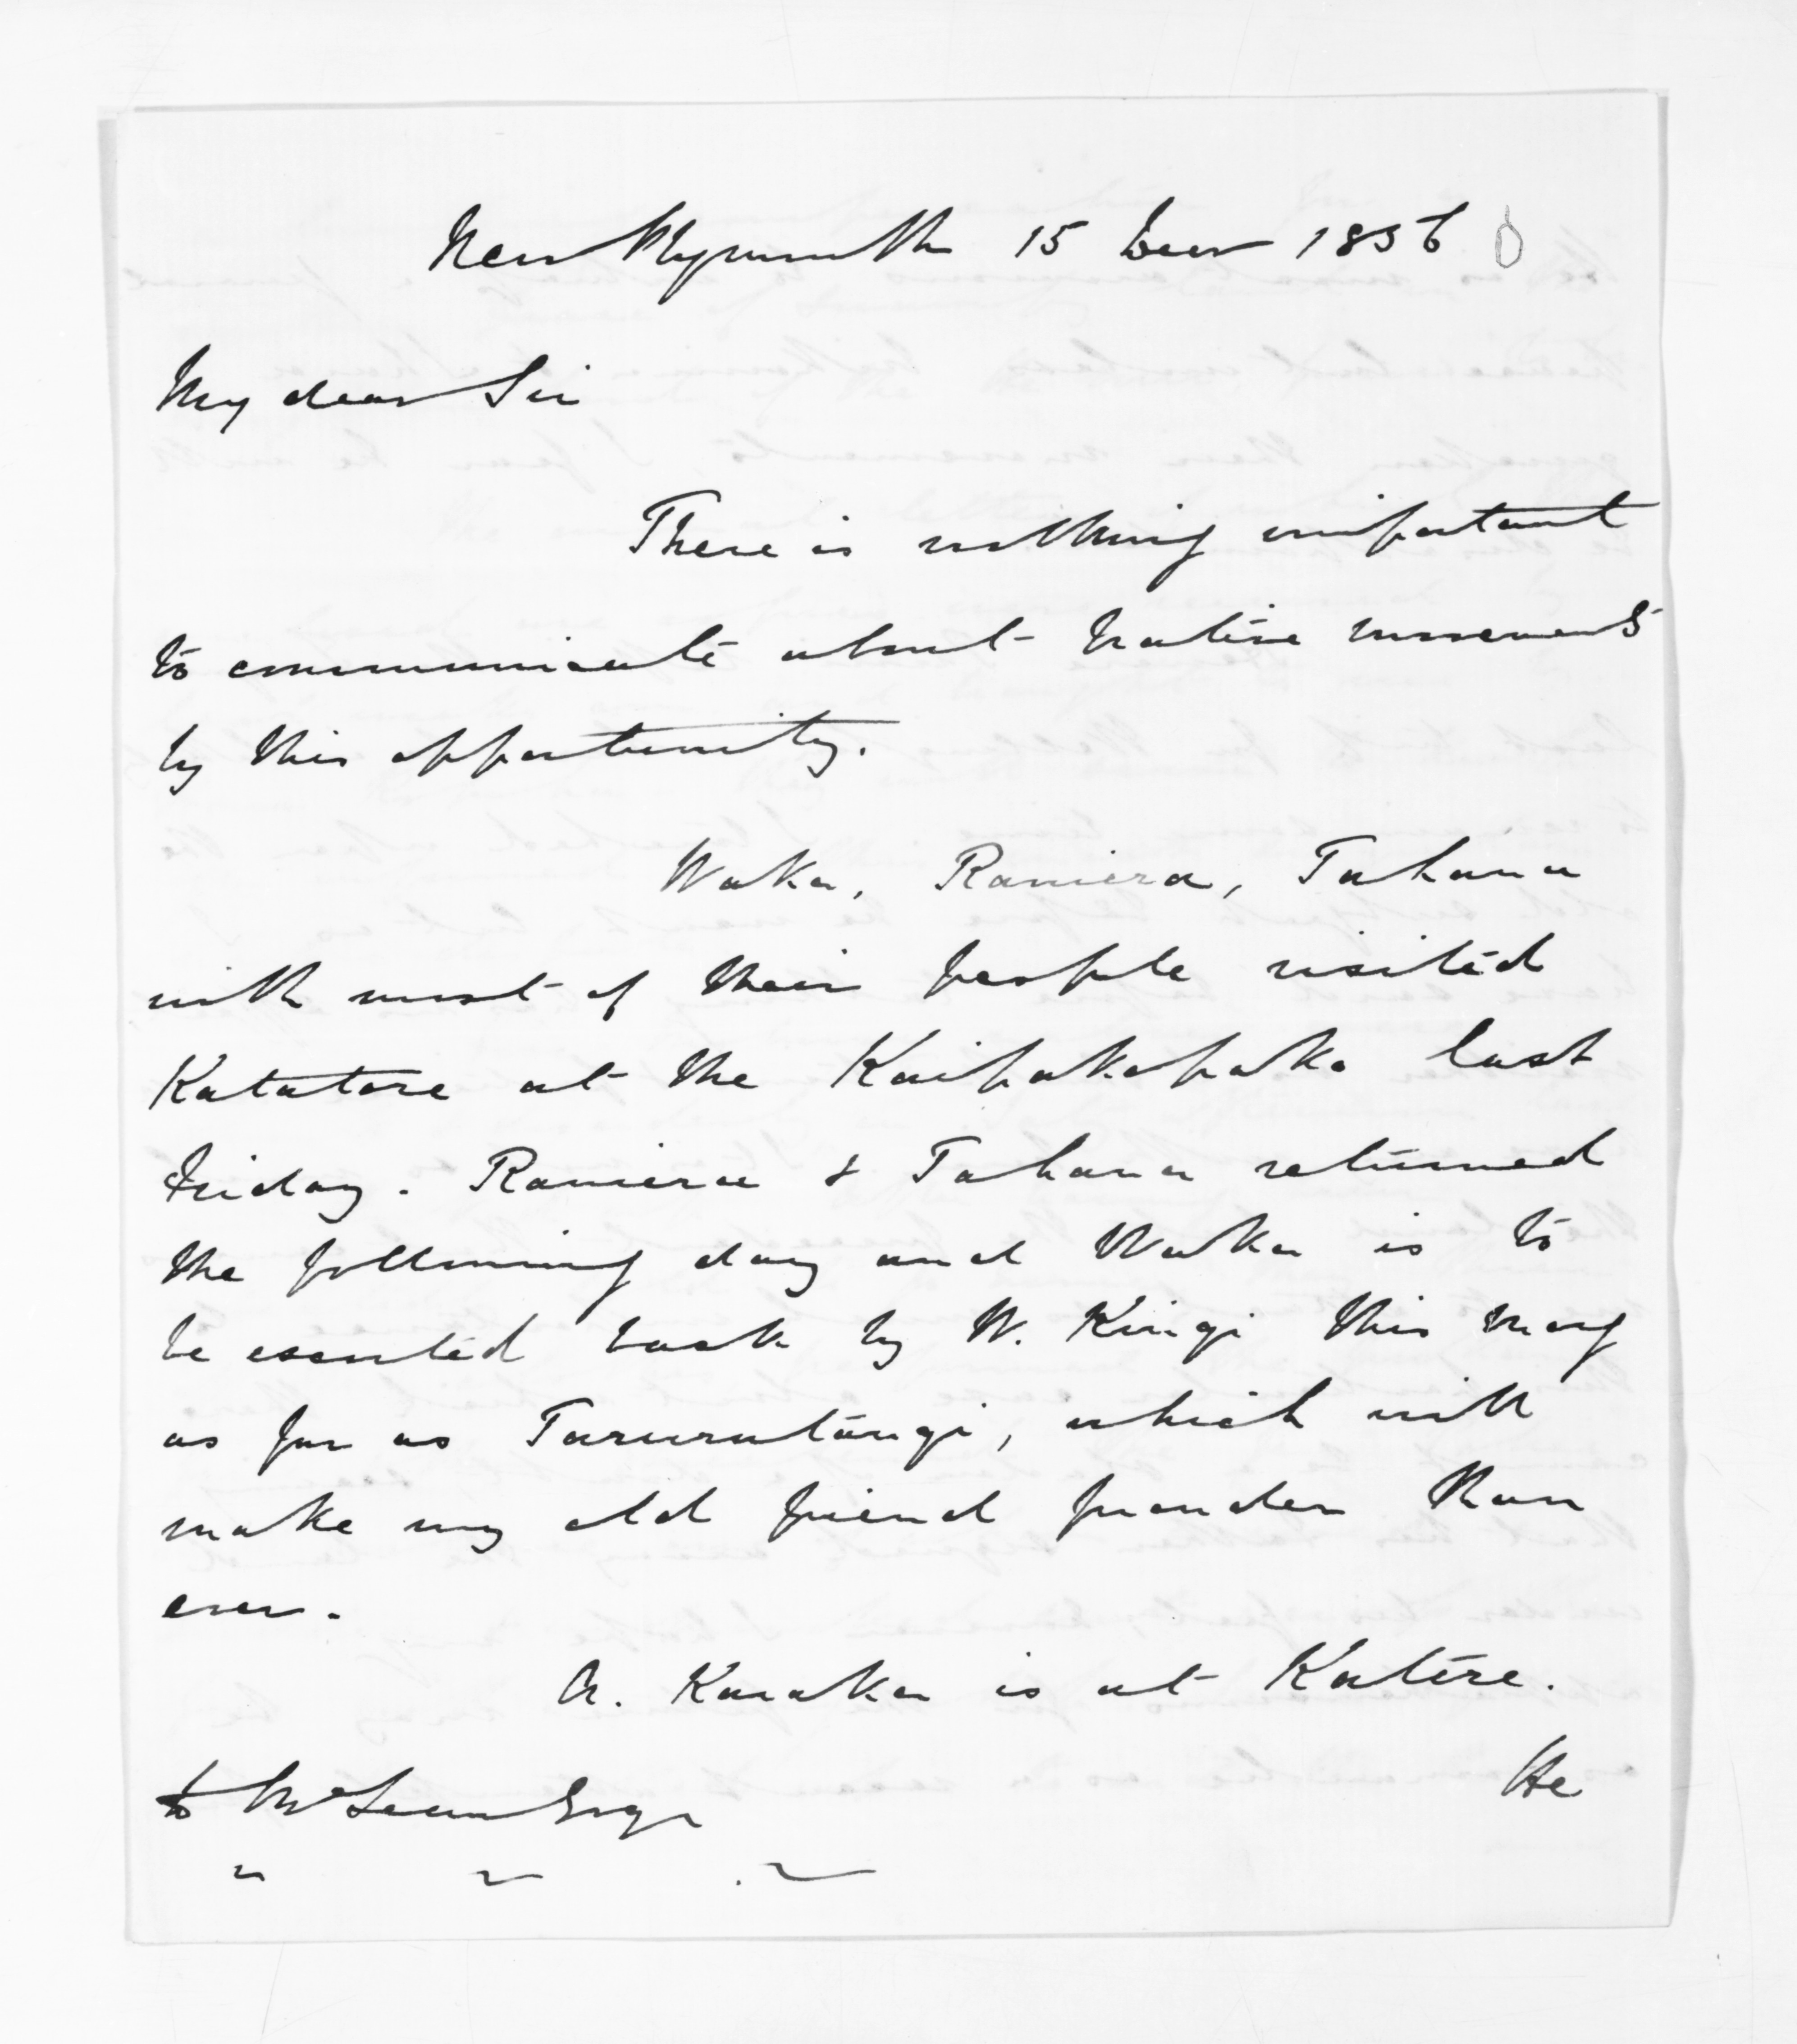 New Plymouth 15 Decr 1856
My dear Sir
There is nothing important
to communicate about Native movements
by this opportunity.
Waka, Raniera, Tahana
with most of their people visited
Katatore at the Kaipakopako last
Friday. Raniera & Tahana returned
the following day and Waka is to
be escorted back by W. Kingi this morg
as far as Tarurutangi, which will
make my old friend prouder than
ever.
A. Karaka is at Katere.
He
McLean Esqr